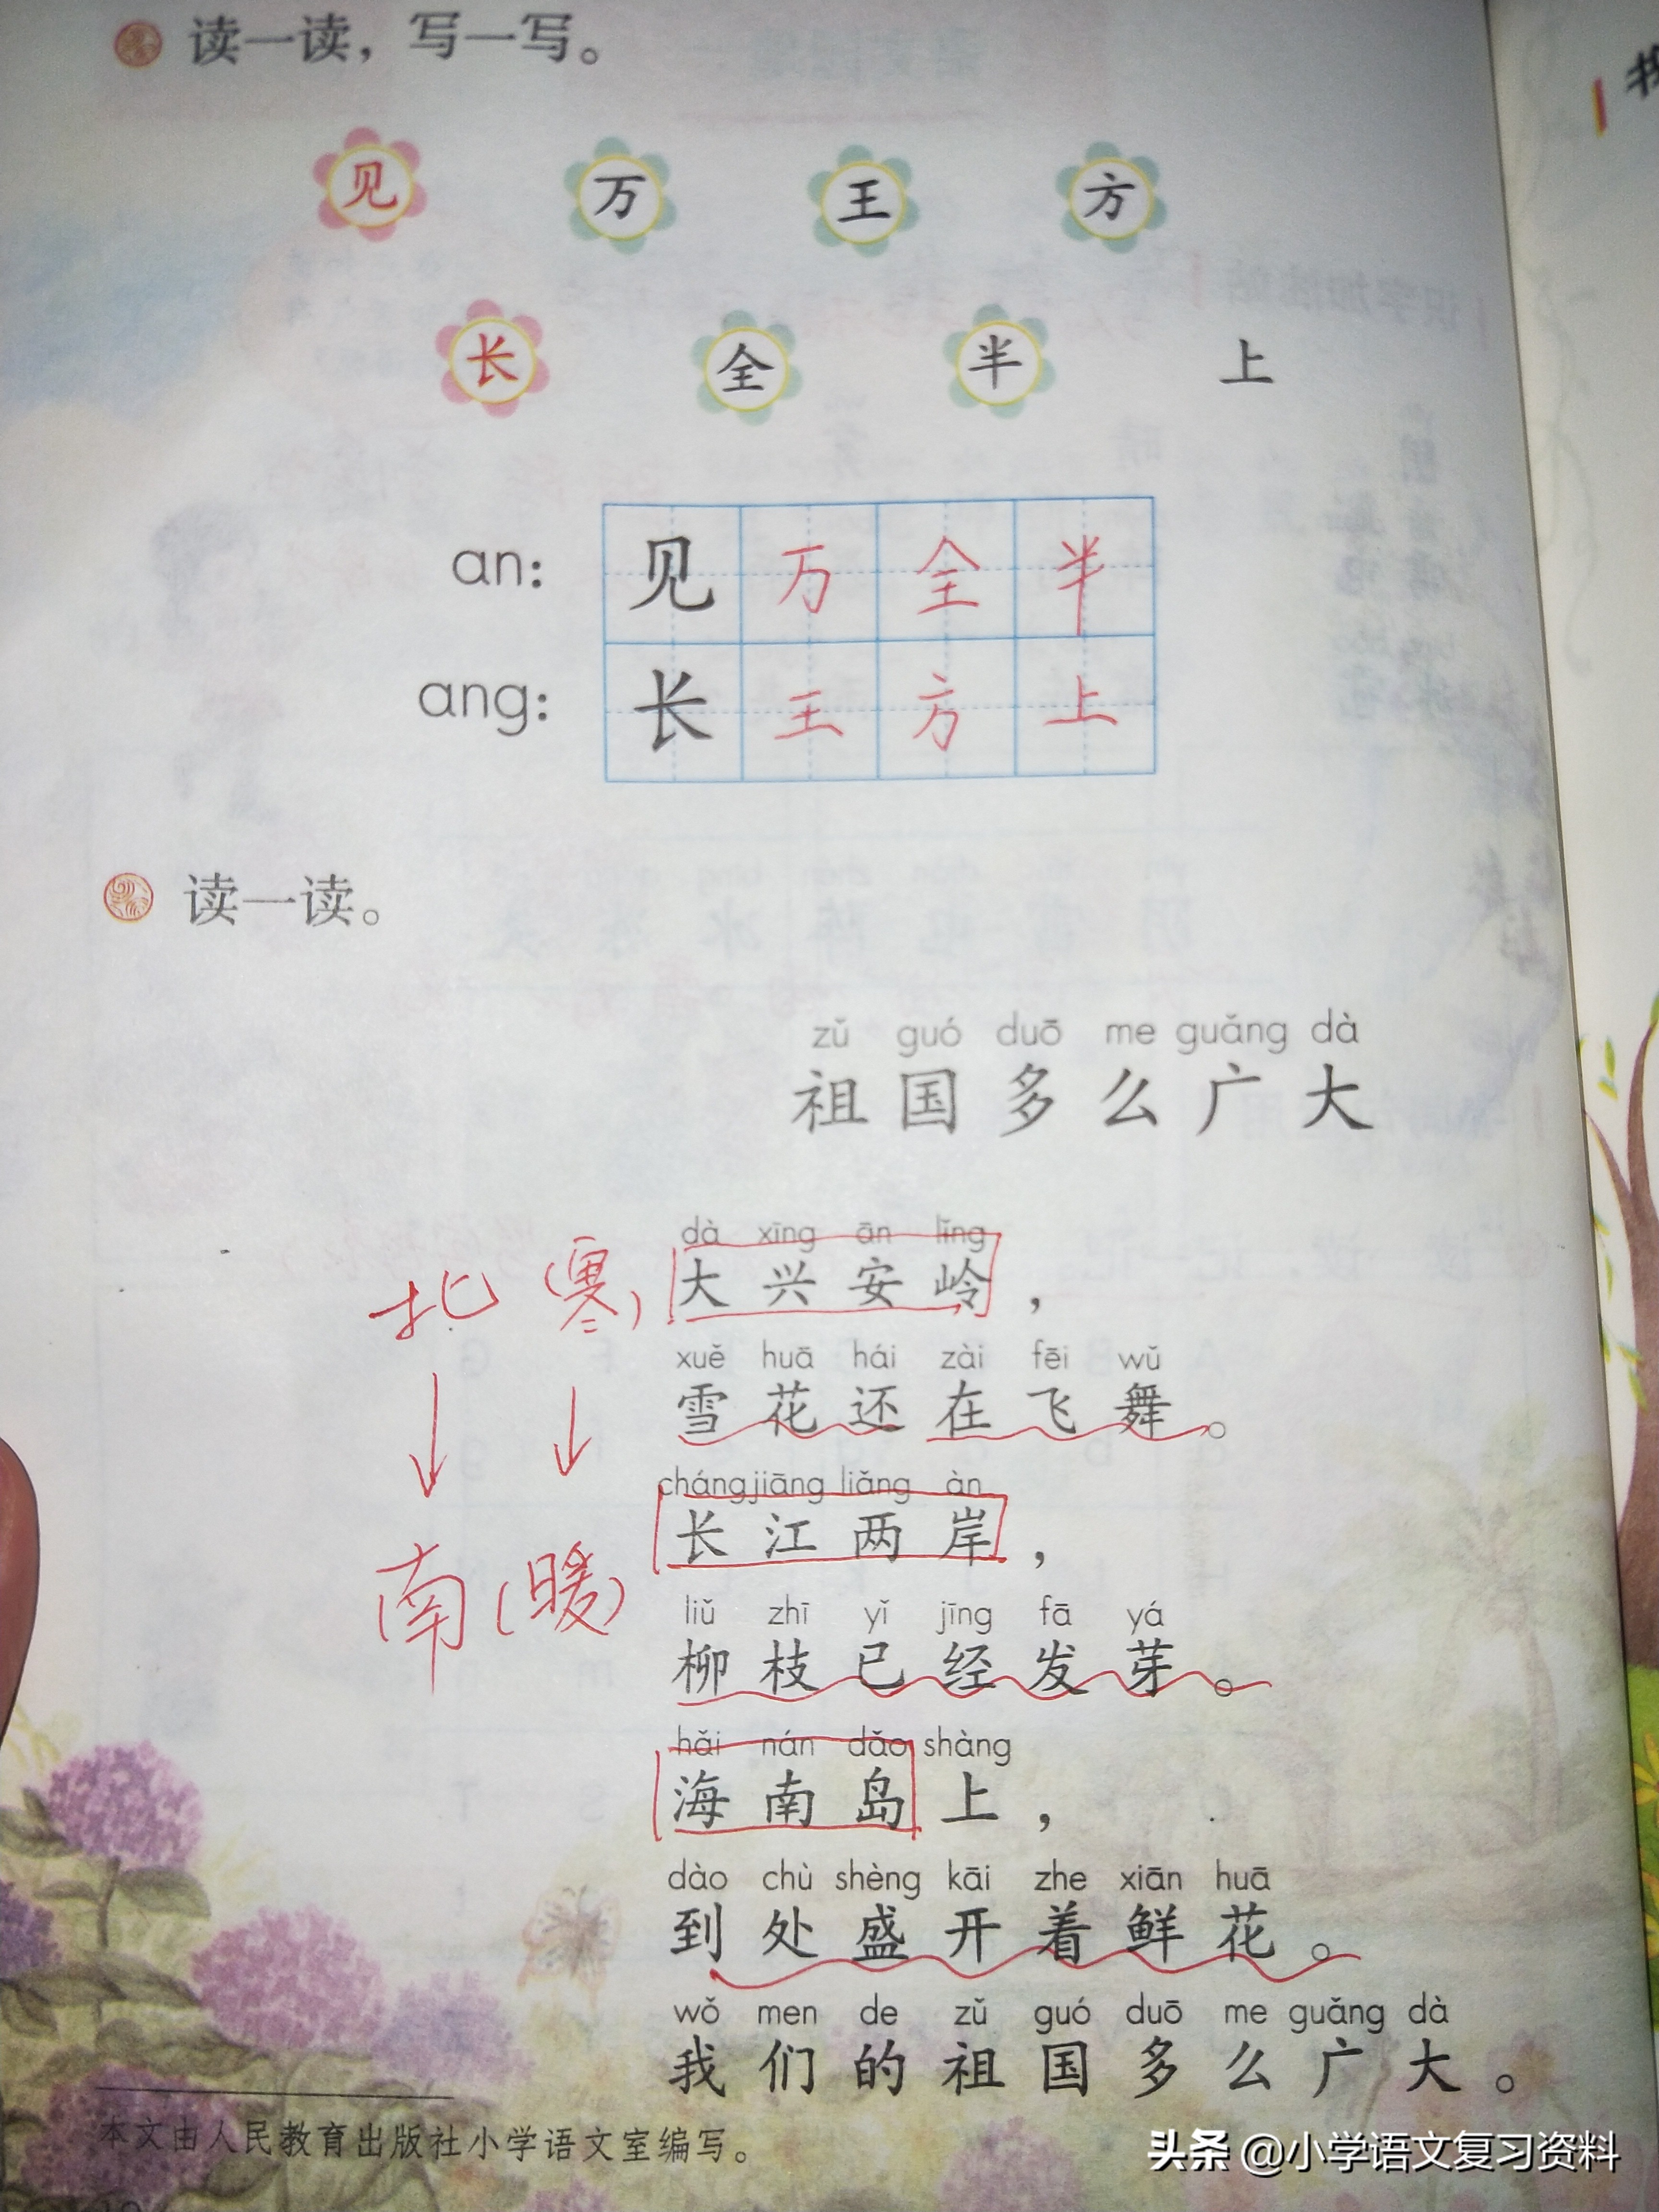 读一读，写一写。
见 万 王 方
长 全 半 上
an: 见 万 全 半
ang: 长 王 方 上
读一读。
zǔ guó duō me guǎng dà
祖国多么广大
dà xīng ān lǐng
北（寒） 大兴安岭，
xuě huā hái zài fēi wǔ
雪花还在飞舞。
cháng jiāng liǎng àn
南（暖） 长江两岸，
liǔ zhī yǐ jīng fā yá
柳枝已经发芽。
hǎi nán dǎo shàng
海南岛上，
dào chù shèng kāi zhe xiān huā
到处盛开着鲜花。
wǒ men de zǔ guó duō me guǎng dà
我们的祖国多么广大。
本文由人民教育出版社小学语文室编写。
头条 @小学语文复习资料